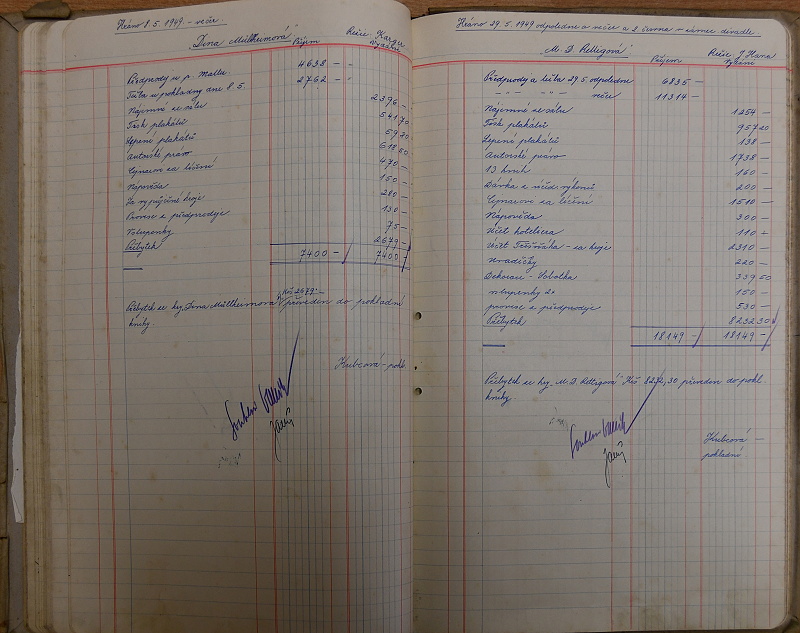 Hráno 8. 5. 1949. - večer.
"Žena Müllheimová" Režie Karger
Příjem Vydání
Předprodej u p. Malle. 4638 -
Tržba u pokladny dne 8. 5. 2762 -
Nájemné ze sálu 2396 -
Tisk plakátů 541 70
Lepení plakátů 59 20
Autorské právo 618 50
Lymarovi za líčení 470 -
Nápověda 150 -
Za vypůjčené kroje 280 -
Provise z předprodeje 130 -
Vstupenky 75 -
Přebytek 2679 -
7400 - 7400 -
Přebytek ze hry "Žena Müllheimová" Kčs 2679.- převeden do pokladní
knihy.
Hrubcová - pokl.
Hráno 29. 5. 1949 odpoledne a večer a 2. června v zámec. divadle
"M. D. Rettigová" Režie J. Hana
Příjem Vydání
Předprodej a tržba 29. 5. odpoledne 6835 -
- " - " - " - večer 11314 -
Nájemné ze sálu 1254 -
Tisk plakátů 957 20
Lepení plakátů 138 -
Autorské právo 1738 -
13 knih 160 -
Dávka z veřej. výkonů 200 -
Lymarovi za líčení 1510 -
Nápověda 300 -
Účet hoteliera 110 -
Účet - za kroje 2310 -
220 -
Dekorace - Sobotka 339 50
vstupenky 2x 150 -
provise z předprodeje 530 -
Přebytek 8232 30
18149 - 18149 -
Přebytek ze hry "M. D. Rettigová" Kčs 8232,30 převeden do pokl.
knihy.
Hrubcová -
pokladní.